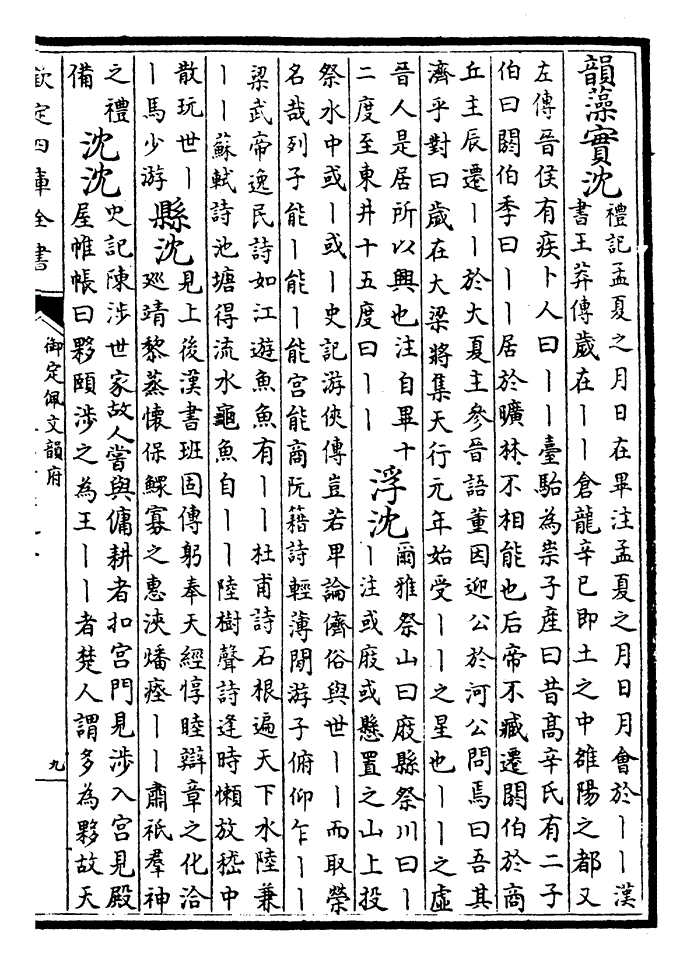 韻藻實沈
禮記孟夏之月日在畢注孟夏之月日月會於丨丨漢
書王莽傳歲在丨丨倉龍辛巳即土之中雒陽之都又
左傳晉侯有疾卜人曰丨丨臺駘為祟子產曰昔高辛氏有二子
伯曰閼伯季曰丨丨居於曠林不相能也后帝不臧遷閼伯於商
丘主辰遷丨丨於大夏主參晉語董因迎公於河公問焉曰吾其
濟乎對曰歲在大梁將集天行元年始受丨丨之星也丨丨之虛
晉人是居所以興也注自畢十
二度至東井十五度曰丨丨
浮沈
爾雅祭山曰庪縣祭川曰丨
丨注或庪或懸置之山上投
祭水中或丨或丨史記游俠傳豈若卑論儕俗與世丨丨而取榮
名哉列子能丨能丨能宫能商阮籍詩輕薄閒游子俯仰乍丨丨
梁武帝逸民詩如江遊魚魚有丨丨杜甫詩石根遍天下水陸兼
丨丨蘇軾詩池塘得流水龜魚自丨丨陸樹聲詩逢時懶放嵇中
散玩世丨
丨馬少游
縣沈
見上後漢書班固傳躬奉天經惇睦辯章之化洽
廵靖黎蒸懷保鰥寡之惠浹燔瘞丨丨肅祇羣神
之禮
備
沈沈
史記陳涉世家故人嘗與傭耕者扣宫門見涉入宫見殿
屋帷帳曰夥頤涉之為王丨丨者楚人謂多為夥故天
欽定四庫全書
御定佩文韻府
九